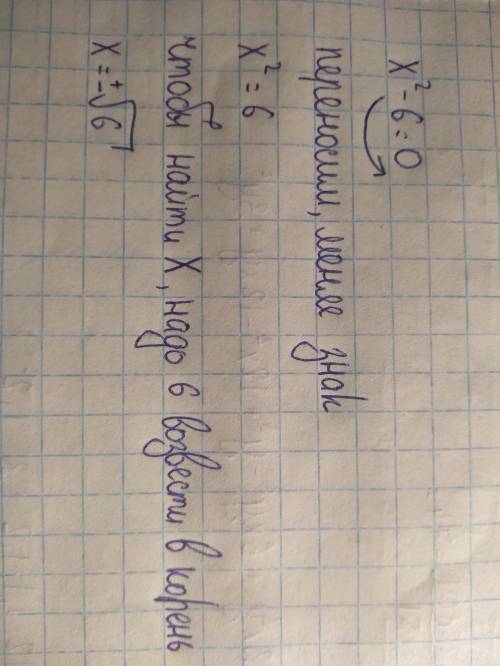 x² - 6 = 0
переносим, меняя знак
x² = 6
чтобы найти x, надо 6 возвести в корень
x = ±√6